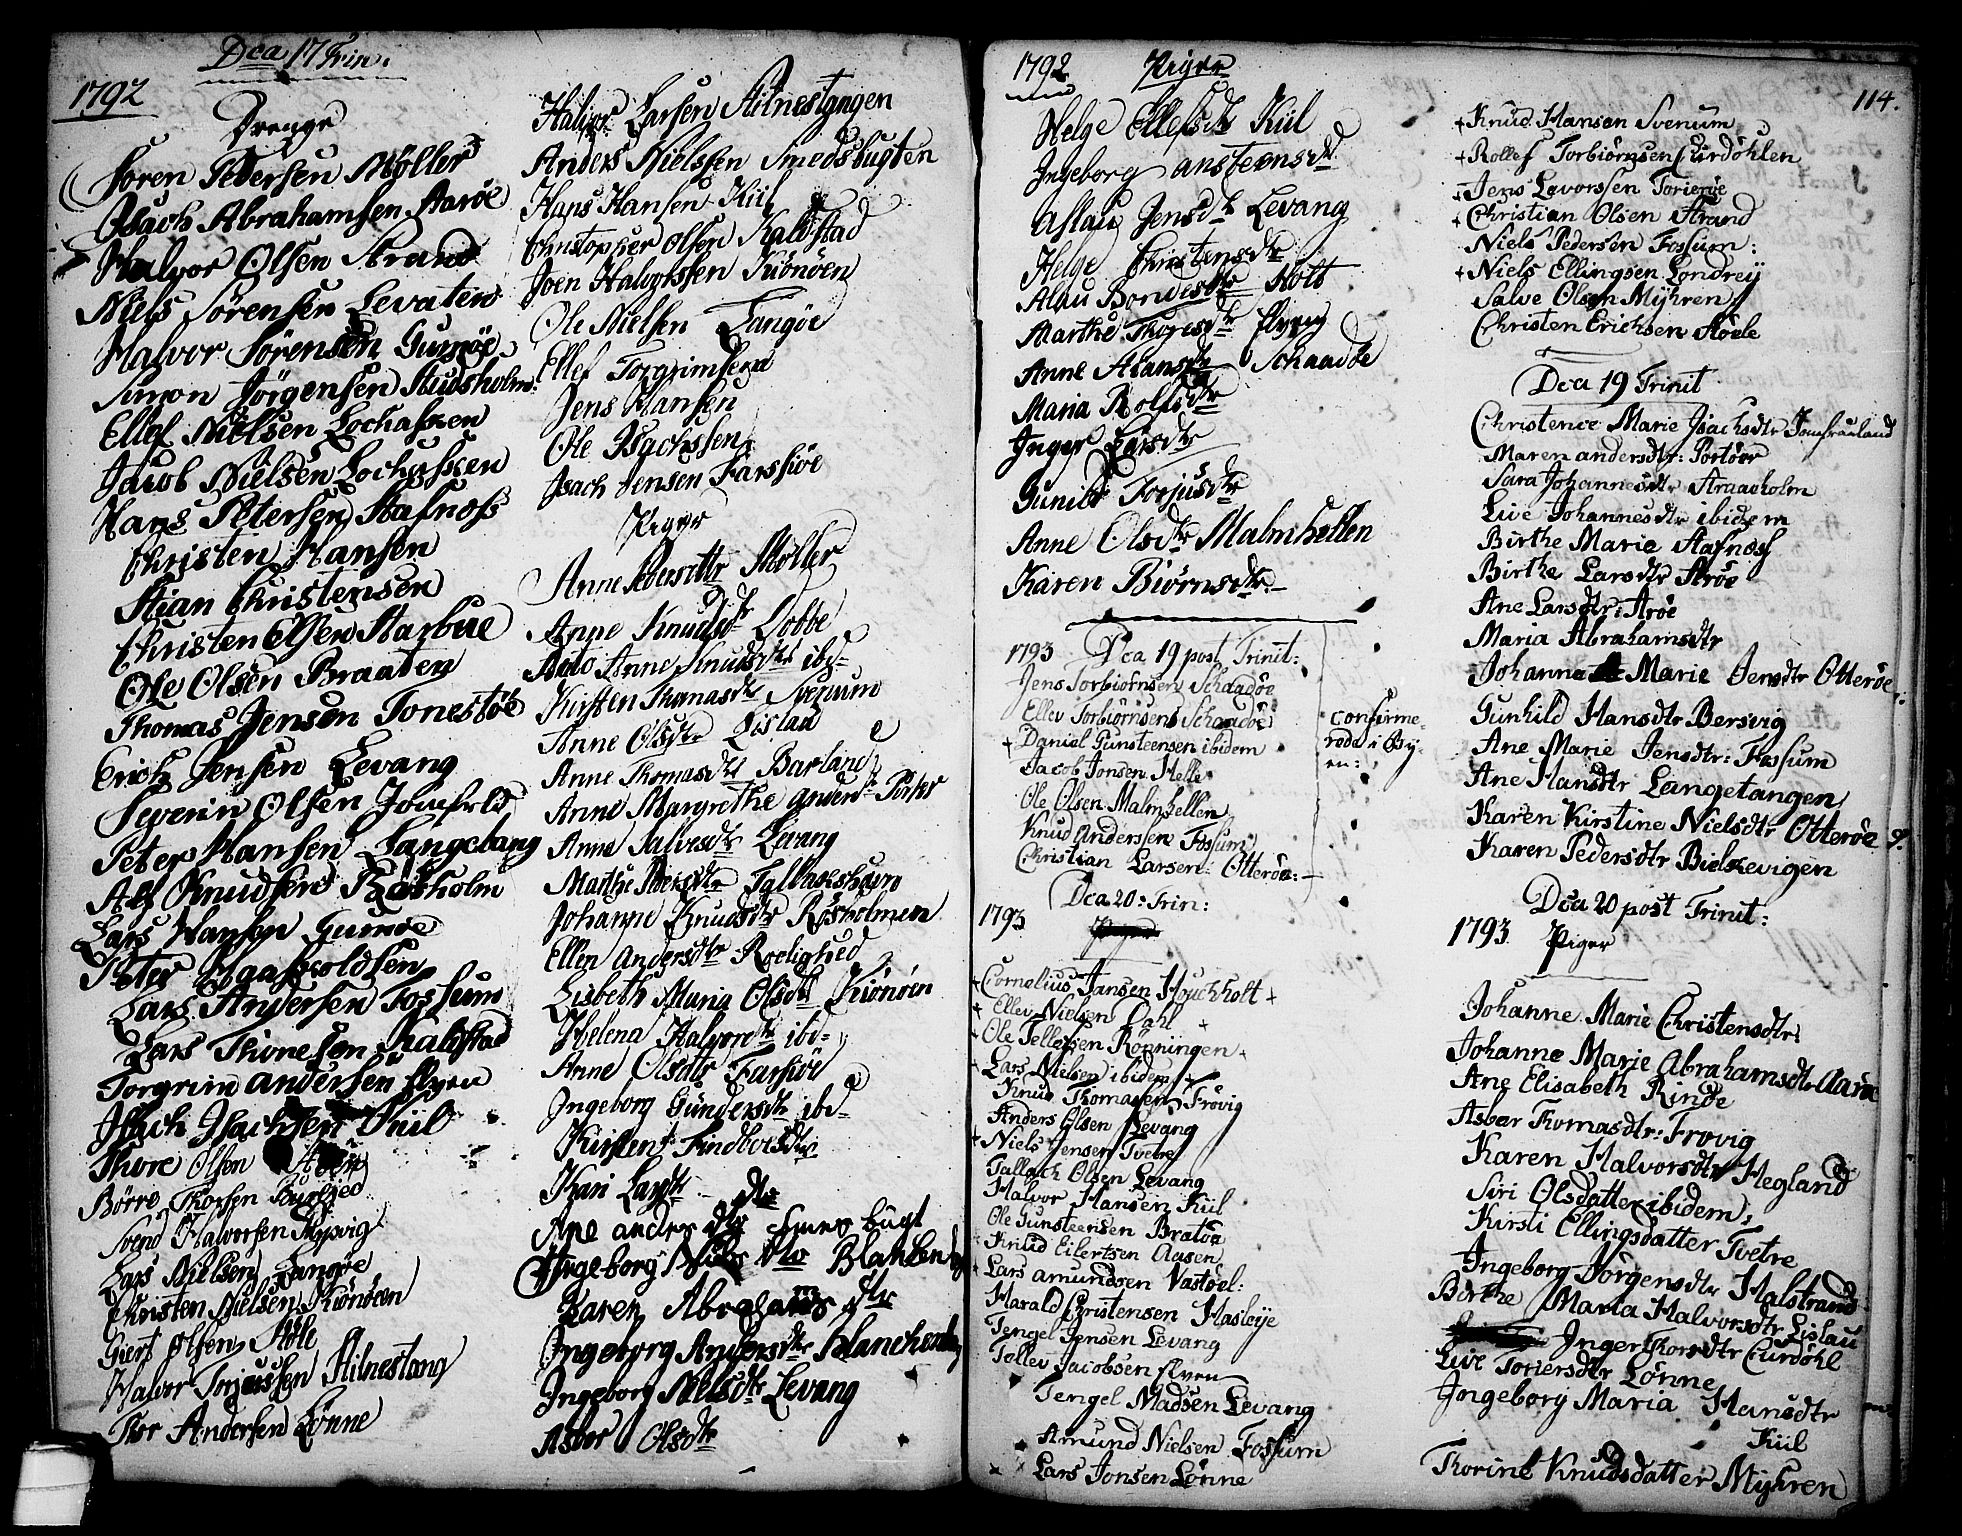 Dca 17 Trin.
1792
Drenge
Søren Petersen Møller
Isach Abrahamsen Aarøe
Halvor Olsen Strand
Niels Sørensen Levaten
Halvor Sørensen Gumøe
Simon Jørgensen Studsholm:
Ellef Nielsen Lochassen
Jacob Nielsen Lochassen
Hans Petersen Stafnæss
Christen Hansen
Stian Christensen
Christen Elsen Starbue
Ole Olsen Braaten
Thomas Jensen Tonestøe
Erich Jensen Levang
Severin Olsen Jomfrld
Peter Hansen Langebang
Alf Knudsen Røsholm
Lars Hansen Gumøe
Peter
Lars Andersen Fossum
Lars Thonesen Kalstad
Torgrim andersen Elven
Isach Isachsen Kiil
Thore Olsen
Børre Thorsen
Svend Halvorsen
Lars Nielsen Langøe
Christen Nielsen Kiønøen
Giert Olsen Støle
Halvor Torjussen Stilnestang
Thor Andersen Lønne
Halvor Larsen Stilnestangen
Anders Nielsen Smedsbugten
Hans Hansen Kiil
Christopher Olsen Kalstad
Joen Halvorssen Kiønøen
Ole Nielsen Langøe
Ellef Torgrimsen
Jens Hansen
Ole Isachssen
Isach Jensen Farsiøe
Piger
Anne Pedersdttr Møller
Anne Knudsdtr Lobbe
Anne Knudsdtr ibi-
Kirsten Thomasdtr Svenum
Anne Olsdtr Lislau
Anne Thomasdtr Barland
Anne Margrethe Andersdtr Porter
Anne Salvesdtr Levang
Marthe Pedersdtr
Johanne Knudsdtr Røsholmen
Ellen Andersdtr Roelighed
Lisbeth Maria Olsdtr Kiønøen
Helena Halvorsdtr ibi-
Anne Olsdttr Farsiøe
Ingeborg Gundersdtr ibi-
Kirsten Findborsdtr
Kari Larsdtr
Ane andersdtr Smedsbugt
Ingeborg Nielsdtr
Karen Abrahamsdtr
Ingeborg Andersdtr
Ingeborg Nielsdtr Levang
Asber Olsdtr
1792 Piger
Helge Ellefsdtr Kiil
Ingeborg ansteensdtr
Aslau Jensdtr Levang
Helge Christensdtr
Alau Bondesdtr Holt
Marthe Thoresdtr Elven
Anne Adansdtr Schaadøe
Maria Rolfsdtr
Inger Larsdtr
Gunild Torjusdtr
Anne Olsdtr Malmhellen
Karen Biørnsdtr.
1793 Dca 19 post Trinit:
Jens Torbiørnsen Schaadøe
Ellev Torbiørnsen Schaadøe
+ Daniel Gunsteensen ibidem
Jacob Jonsen Helle
Ole Olsen Malmhellen
Knud Andersen Fossum
Christian Larsen: Otterøe:
confirme-
rede i By-
en:
Dca 20: Trin:
1793
+ Cornelius Jansen Houchholt +
+ Ellev Nielsen Dahl +
Ole Tellefsen Rønningen
Lars Nielsen ibidem
Knud Thomasen Frøvig
Anders Olsen Levang
+ Niels Jensen Tvetre
Tallach Olsen Levang
Halvor Hansen Kiil
Ole Gunsteensen Bratøe
Knud Eilertsen Aasen
Lars amundsen Vastøel:
Harald Christensen Hasleije
Tengel Jensen Levang
Tollev Jacobsen Elven
Tengel Madsen Levang
Amund Nielsen Fossum
Lars Jonsen Lønne
114.
+ Knud Hansen Svenum
+ Rollef Torbiørnsen Curdøhlen
+ Jens Lavorssen Torierøe
+ Christian Olsen Strand
Niels Pedersen Fossum:
+ Niels Ellingsen Londreij
Salve Olsen Myhren
Christen Erichsen Støele
Dca 19 Trinit
Christence Marie Isachsdtr Jomfruland
Maren andersdtr: Portøer
Sara Johannesdtr Straaholm
Live Johannesdtr ibidem
Birthe Marie Stafnæss
Birthe Larsdtr Arøe
Ane Larsdtr: Arøe
Maria Abrahamsdtr
Johanna Marie Jensdtr Otterøe:
Gunhild Hansdtr Bersvig
Ane Marie Jensdtr: Fossum
Ane Hansdtr Langetangen
Karen Kirstine Nielsdtr Otterøe
Karen Pedersdtr Bielkevigen
Dca 20 post Trinit:
1793. Piger
Johanne Marie Christensdtr:
Johanne Marie Abrahamsdtr Aarøe
Ane Elisabeth Rinde
Asbør Thomasdtr: Frøvig
Karen Halvorsdtr Hegland
Siri Olsdatter ibidem:
Kirsti Ellingsdatter Tvetre
Ingeborg Jørgensdtr Halstrand
Birthe Maria Halvorsdtr Lislau
Inger Thorsdtr Curdøhl
Live Toriersdtr Lønne
Ingeborg Maria Hansdtr
Kiil
Thorine Knudsdatter Myhren